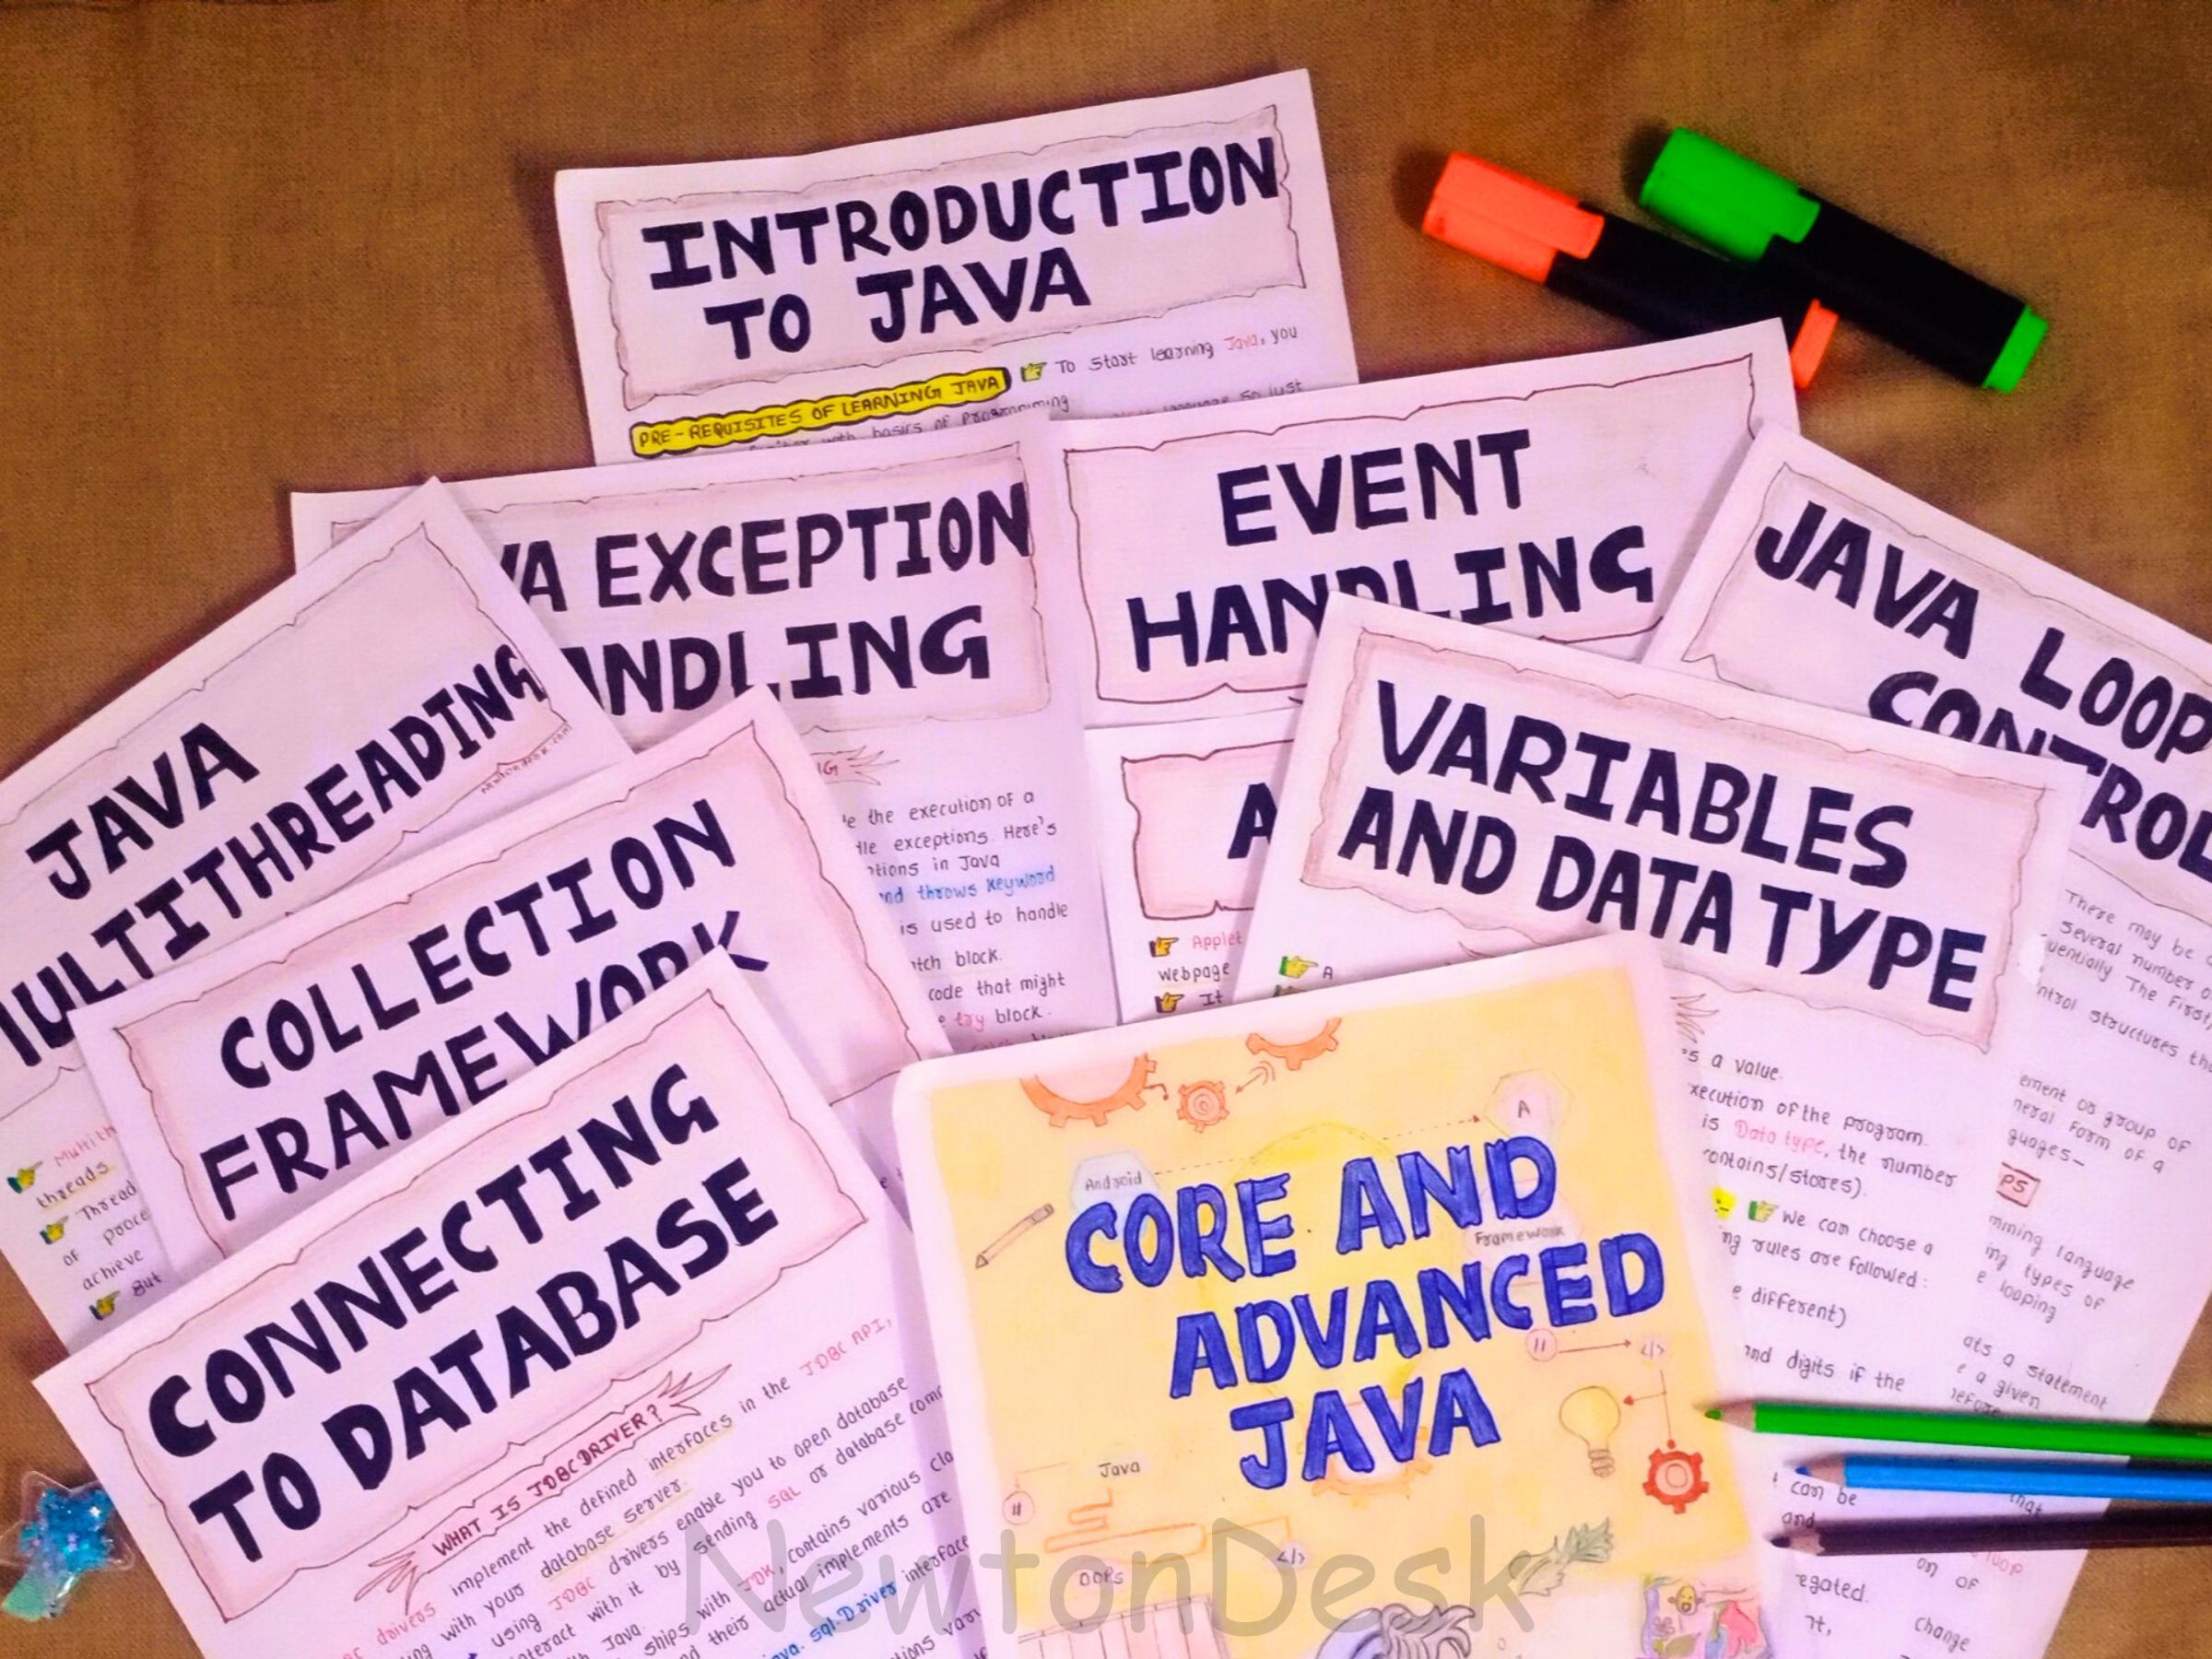 INTRODUCTION
TO JAVA
PRE-REQUISITES OF LEARNING JAVA To start learning Java, you
with basics of Programming language so just
EVENT
HANDLING
JAVA LOOP
CONTROL
There may be a
several number of
uentially The First,
ntrol structures tha
ement or group of
neral form of a
guages-
PS
mining language
ing types of
e looping
ats a statement
e a given
before
that
loop
Change
VA EXCEPTION
ANDLING
NG
e the execution of a
dle exceptions. Here's
ptions in Java
nd throws keyword
is used to handle
atch block.
code that might
e try block.
JAVA
MULTITHREADING
Newtondesk.com
Multith
threads.
Thread
of proce
achieve
But
A
Applet
webpage
It
VARIABLES
AND DATA TYPE
A
es a value.
xecution of the program.
is Data type, the number
contains/stores).
We can choose a
ng rules are followed:
e different)
and digits if the
can be
and
on of
egated.
It,
COLLECTION
FRAMEWORK
CONNECTING
TO DATABASE
WHAT IS JDBC DRIVER?
BC drivers implement the defined interfaces in the JDBC API,
ing with your database server.
using JDBC drivers enable you to open database
interact with it by sending SQL or database com
th Java. ships with JDK, contains various cla
and their actual implements are
java.sql.Driver interface
A
Android
CORE AND
Framework
ADVANCED
JAVA
</>
Java
</>
OOPs
NewtonDesk